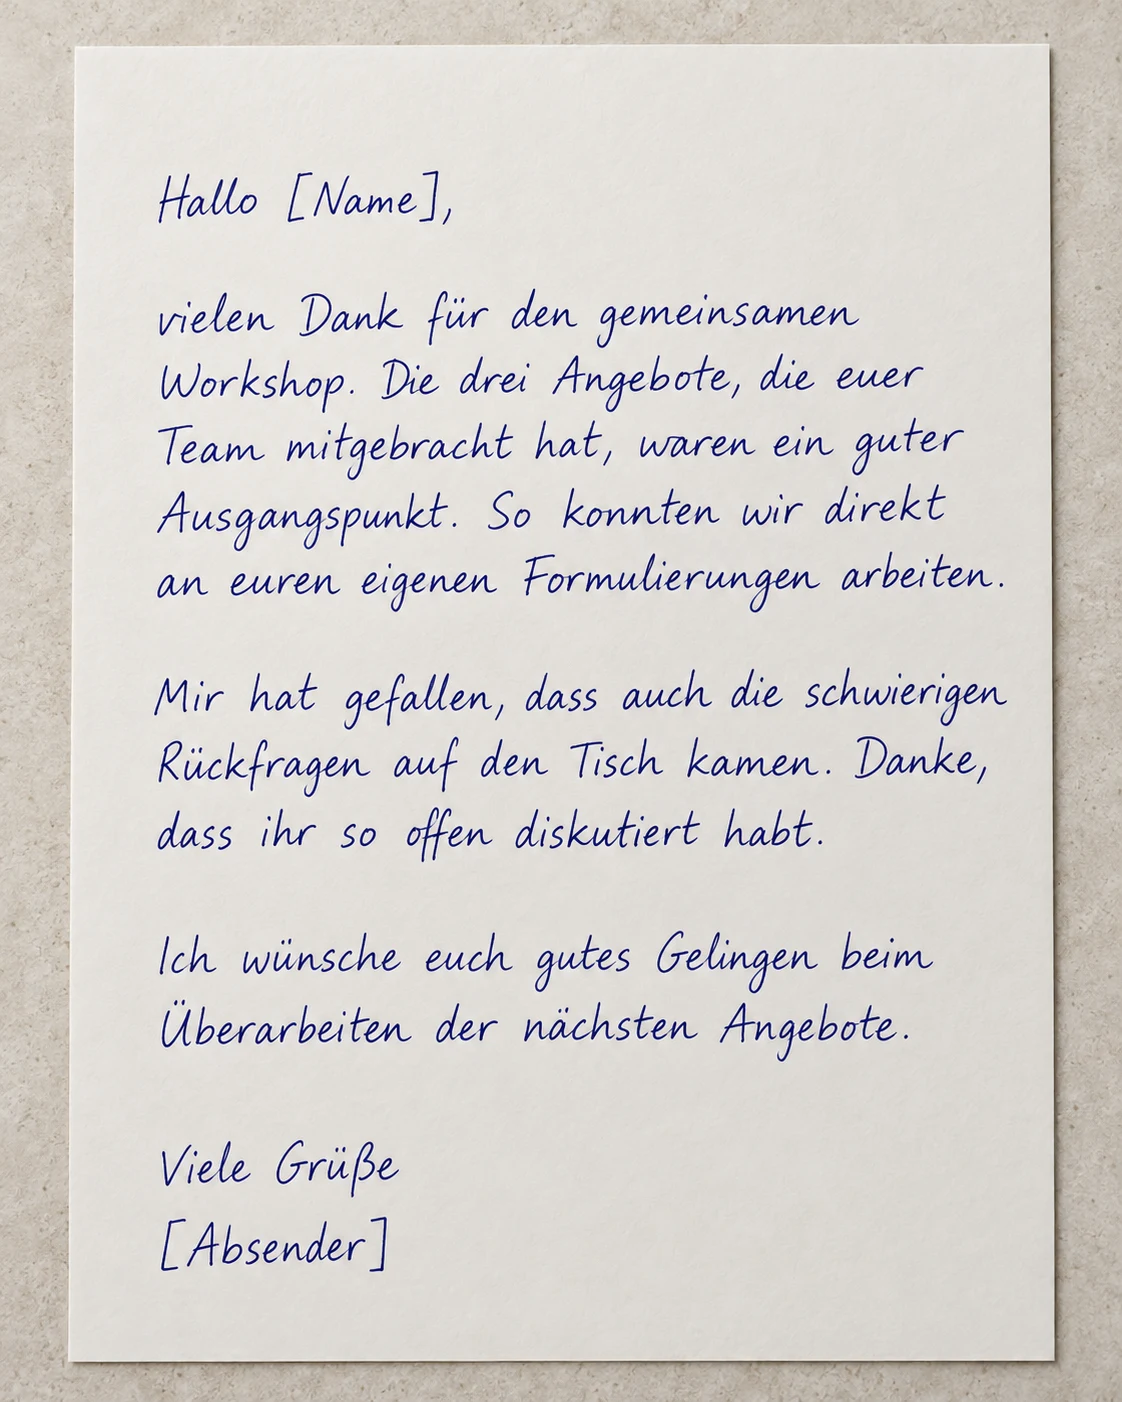 Hallo [Name],
vielen Dank für den gemeinsamen
Workshop. Die drei Angebote, die euer
Team mitgebracht hat, waren ein guter
Ausgangspunkt. So konnten wir direkt
an euren eigenen Formulierungen arbeiten.
Mir hat gefallen, dass auch die schwierigen
Rückfragen auf den Tisch kamen. Danke,
dass ihr so offen diskutiert habt.
Ich wünsche euch gutes Gelingen beim
Überarbeiten der nächsten Angebote.
Viele Grüße
[Absender]